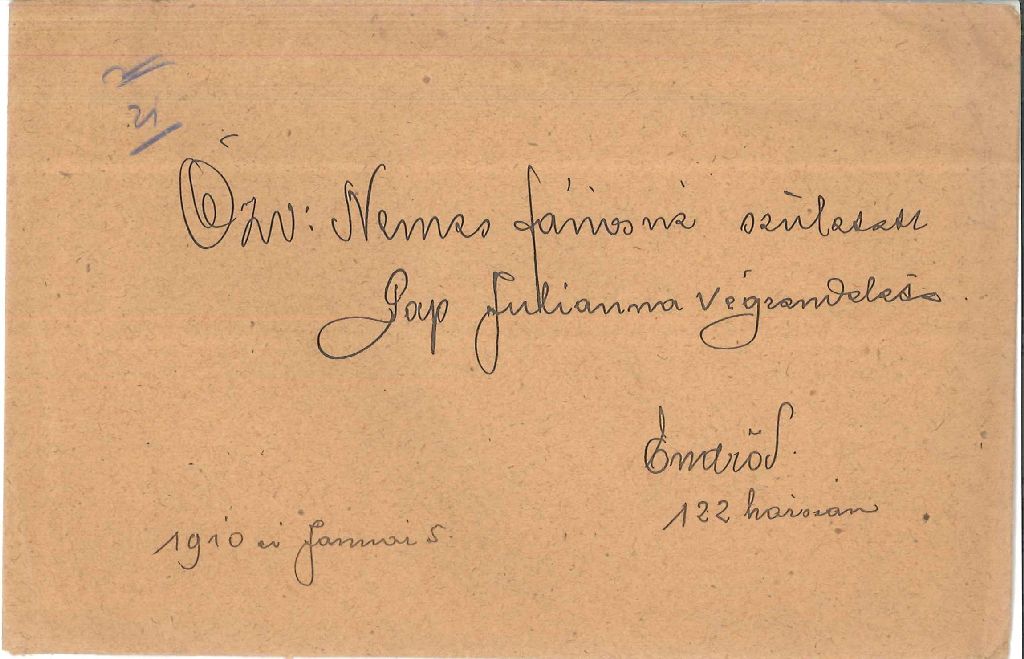 21
Özv: Nemes Jánosné született
Pap Julianna végrendelete
Endrőd.
122 házszám
1910 évi Januái 5.